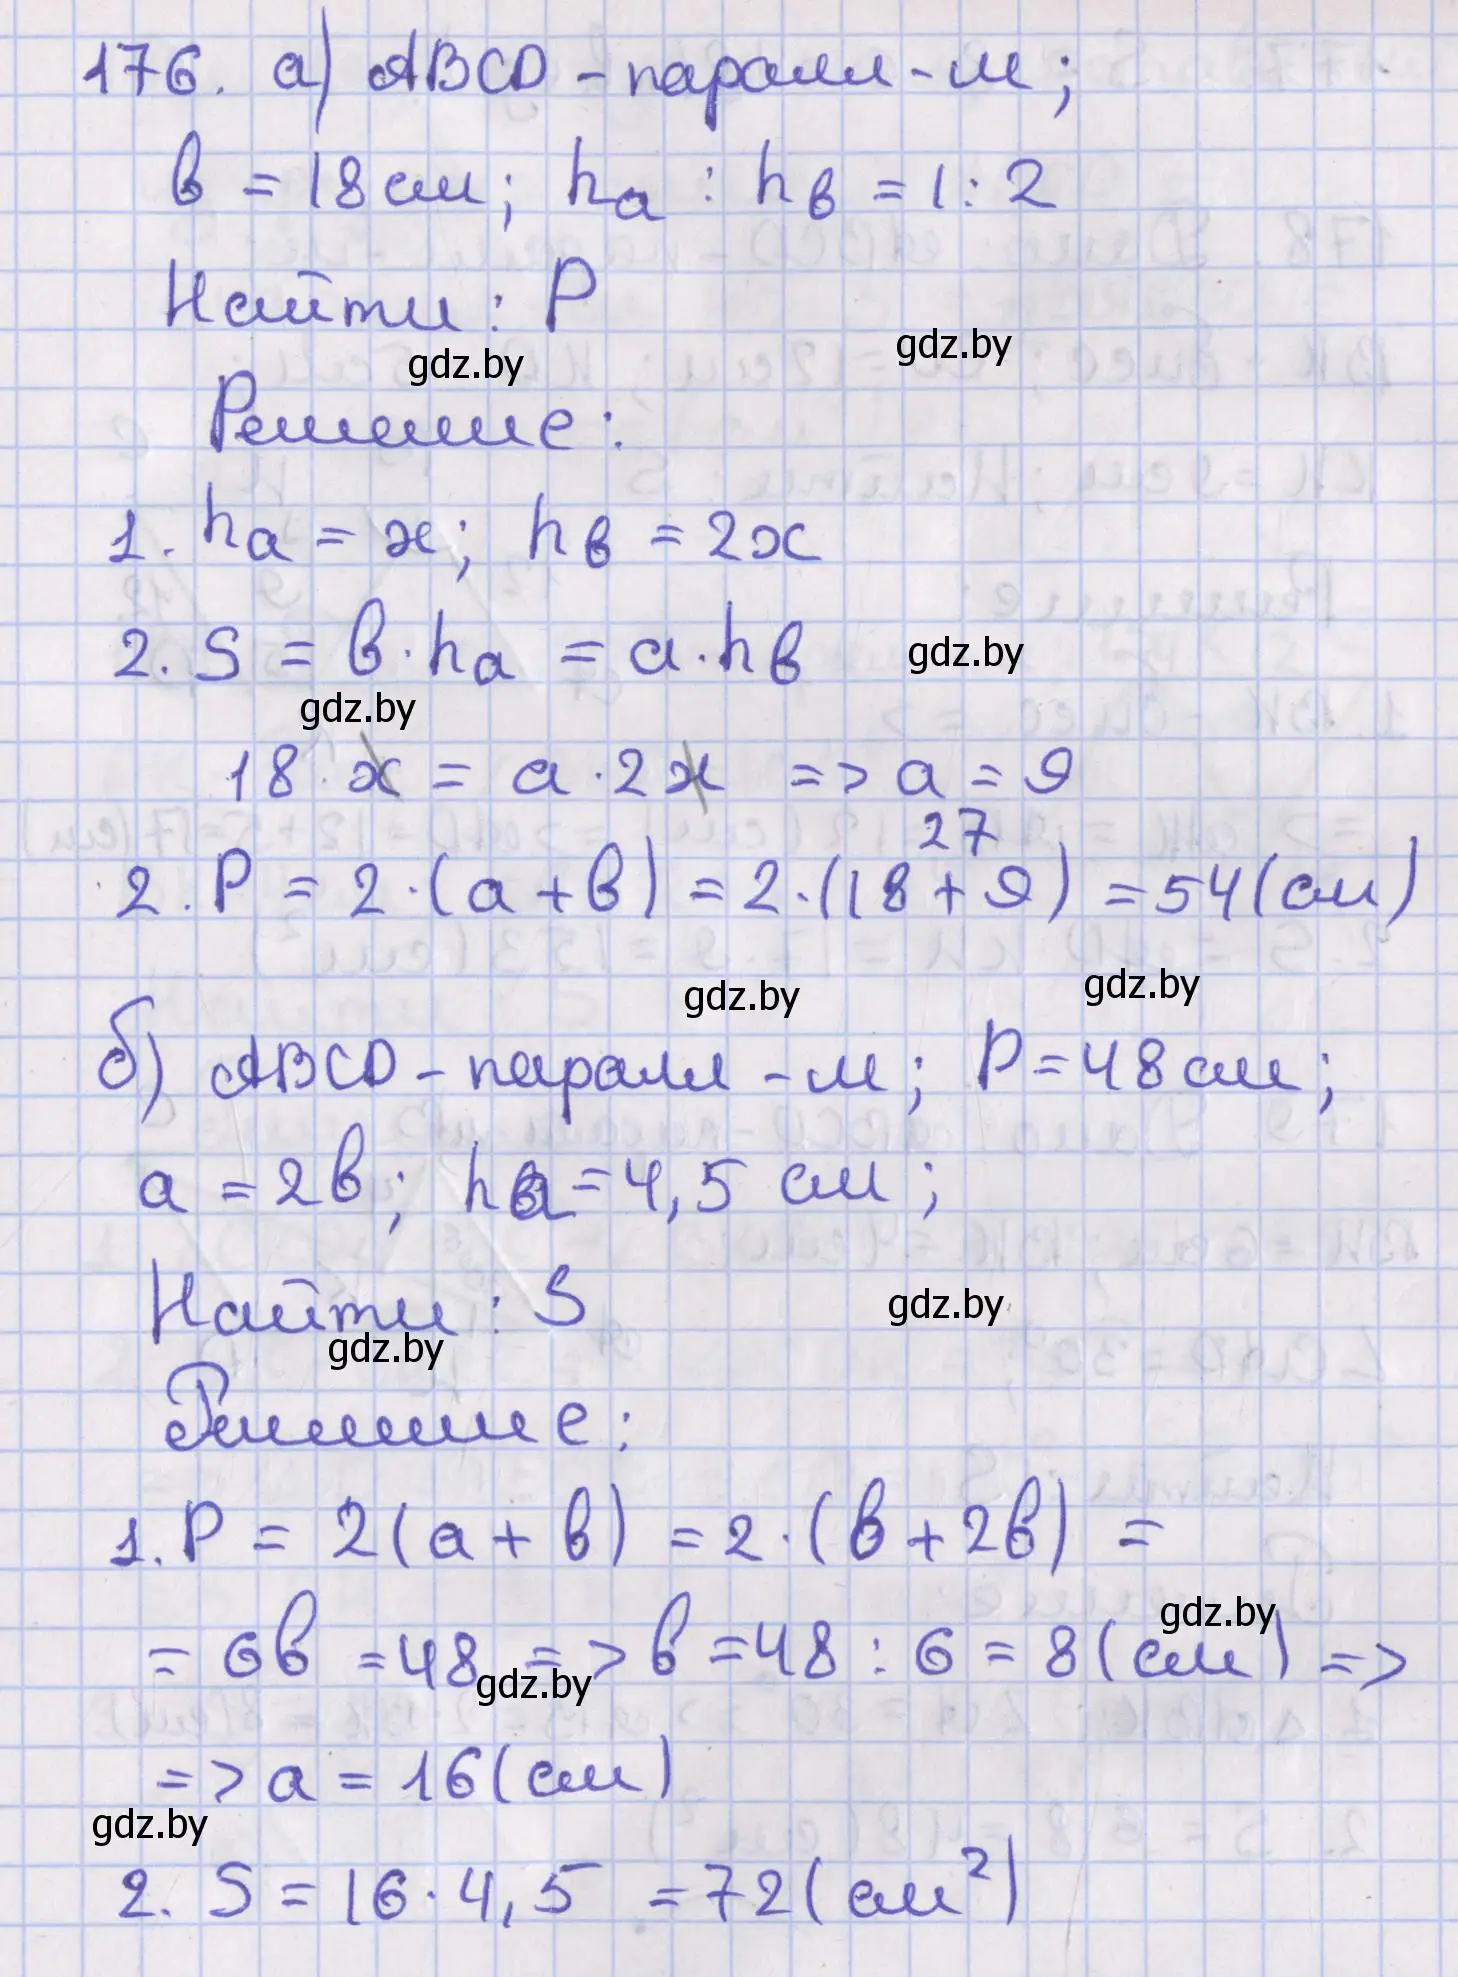 176. а) ABCD - паралл-м;
в = 18 см; ha : hв = 1 : 2
Найти: P
gdz.by gdz.by
Решение:
1. ha = x; hв = 2x
2. S = в · ha = a · hв gdz.by
gdz.by
18 · x = a · 2x => a = 9
27
2. P = 2 · (a + в) = 2 · (18 + 9) = 54 (см)
gdz.by gdz.by
б) ABCD - паралл-м; P = 48 см;
a = 2в; ha = 4,5 см;
Найти: S gdz.by
gdz.by
Решение:
1. P = 2(a + в) = 2 · (в + 2в) =
gdz.by
= 6в = 48 => в = 48 : 6 = 8 (см) =>
gdz.by
=> a = 16 (см)
gdz.by
2. S = 16 · 4,5 = 72 (см²)